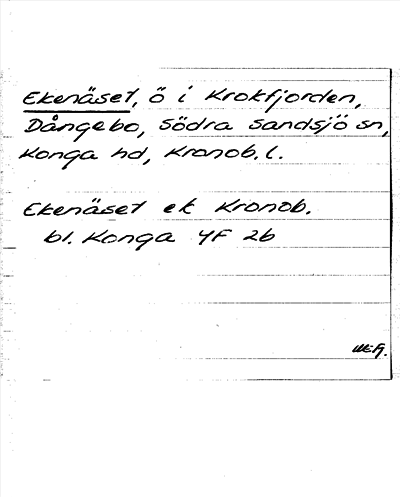 Ekenäset, ö i Krokfjorden,
Dångebo, Södra Sandsjö sn,
Konga hd, Kronob. l.
Ekenäset ek Kronob.
bl. Konga 4F 2b